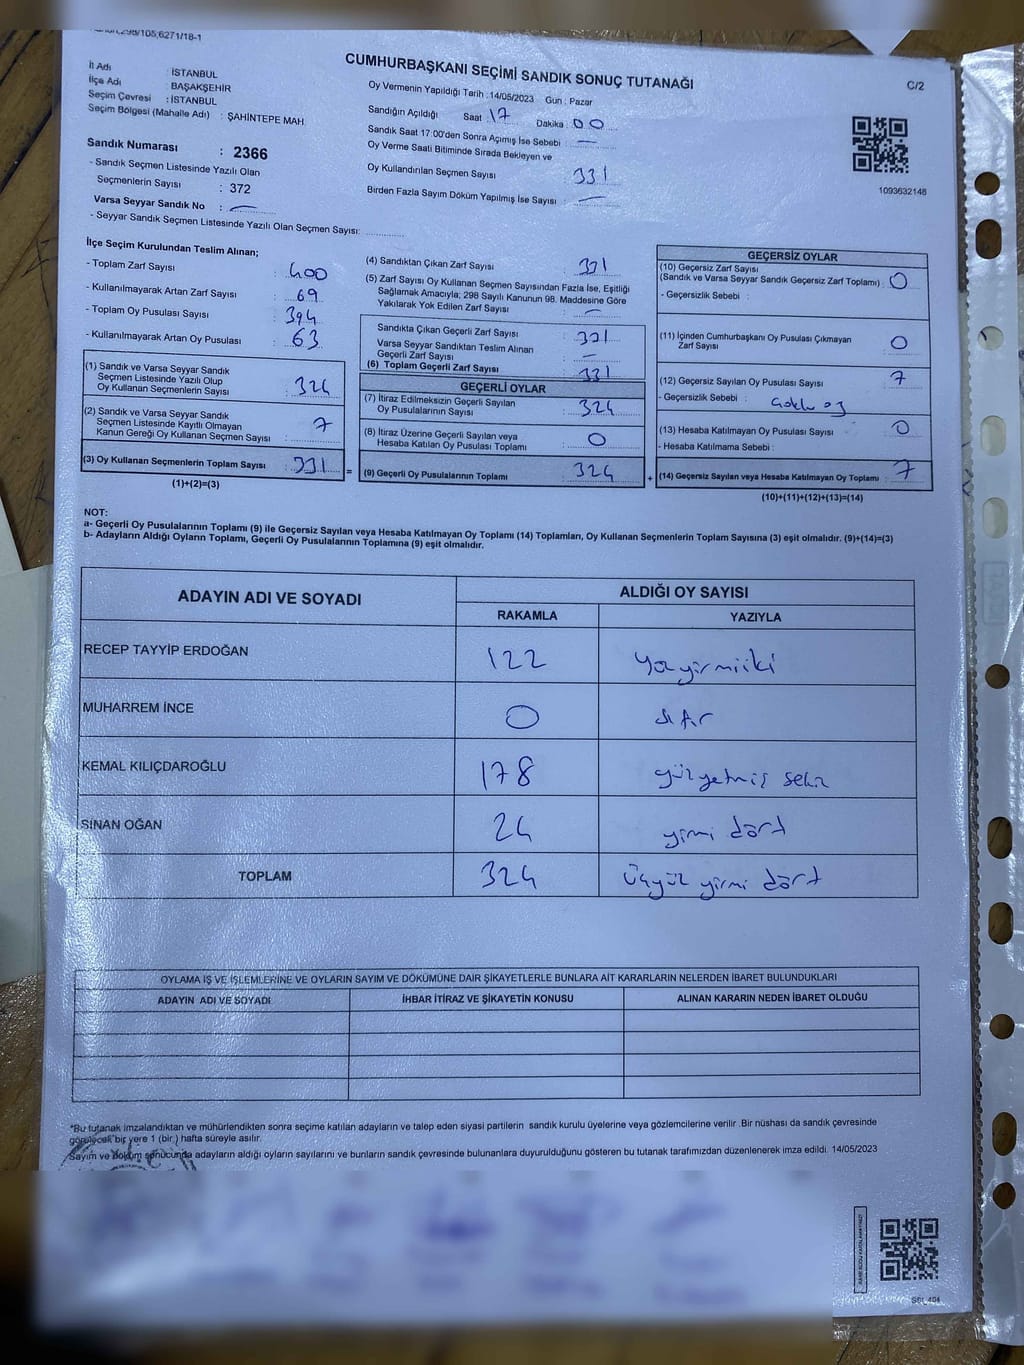 298/105,6271/18-1
CUMHURBAŞKANI SEÇİMİ SANDIK SONUÇ TUTANAĞI
C/2
İl Adı : İSTANBUL
İlçe Adı : BAŞAKŞEHİR
Seçim Çevresi : İSTANBUL
Seçim Bölgesi (Mahalle Adı) : ŞAHİNTEPE MAH.
Oy Vermenin Yapıldığı Tarih : 14/05/2023 Gün : Pazar
Sandığın Açıldığı Saat : 17 Dakika : 00
Sandık Saat 17:00'den Sonra Açımış İse Sebebi : —
Oy Verme Saati Bitiminde Sırada Bekleyen ve
Oy Kullandırılan Seçmen Sayısı : 331
Birden Fazla Sayım Döküm Yapılmış İse Sayısı : —
1093632148
Sandık Numarası : 2366
- Sandık Seçmen Listesinde Yazılı Olan
Seçmenlerin Sayısı : 372
Varsa Seyyar Sandık No : —
- Seyyar Sandık Seçmen Listesinde Yazılı Olan Seçmen Sayısı:
İlçe Seçim Kurulundan Teslim Alınan;
- Toplam Zarf Sayısı : 400
- Kullanılmayarak Artan Zarf Sayısı : 69
- Toplam Oy Pusulası Sayısı : 394
- Kullanılmayarak Artan Oy Pusulası : 63
(1) Sandık ve Varsa Seyyar Sandık
Seçmen Listesinde Yazılı Olup
Oy Kullanan Seçmenlerin Sayısı : 324
(2) Sandık ve Varsa Seyyar Sandık
Seçmen Listesinde Kayıtlı Olmayan
Kanun Gereği Oy Kullanan Seçmen Sayısı : 7
(3) Oy Kullanan Seçmenlerin Toplam Sayısı : 331
(1)+(2)=(3)
=
(4) Sandıktan Çıkan Zarf Sayısı : 331
(5) Zarf Sayısı Oy Kullanan Seçmen Sayısından Fazla İse, Eşitliği
Sağlamak Amacıyla; 298 Sayılı Kanunun 98. Maddesine Göre
Yakılarak Yok Edilen Zarf Sayısı : —
Sandıkta Çıkan Geçerli Zarf Sayısı : 331
Varsa Seyyar Sandıktan Teslim Alınan
Geçerli Zarf Sayısı : —
(6) Toplam Geçerli Zarf Sayısı : 331
GEÇERLİ OYLAR
(7) İtiraz Edilmeksizin Geçerli Sayılan
Oy Pusulalarının Sayısı : 324
(8) İtiraz Üzerine Geçerli Sayılan veya
Hesaba Katılan Oy Pusulaları Toplamı : 0
(9) Geçerli Oy Pusulalarının Toplamı : 324
+
GEÇERSİZ OYLAR
(10) Geçersiz Zarf Sayısı
(Sandık ve Varsa Seyyar Sandık Geçersiz Zarf Toplamı) : 0
- Geçersizlik Sebebi :
(11) İçinden Cumhurbaşkanı Oy Pusulası Çıkmayan
Zarf Sayısı : 0
(12) Geçersiz Sayılan Oy Pusulası Sayısı : 7
- Geçersizlik Sebebi :
(13) Hesaba Katılmayan Oy Pusulası Sayısı : 0
- Hesaba Katılmama Sebebi :
(14) Geçersiz Sayılan veya Hesaba Katılmayan Oy Toplamı : 7
(10)+(11)+(12)+(13)=(14)
NOT:
a- Geçerli Oy Pusulalarının Toplamı (9) ile Geçersiz Sayılan veya Hesaba Katılmayan Oy Toplamı (14) Toplamları, Oy Kullanan Seçmenlerin Toplam Sayısına (3) eşit olmalıdır. (9)+(14)=(3)
b- Adayların Aldığı Oyların Toplamı, Geçerli Oy Pusulalarının Toplamına (9) eşit olmalıdır.
ADAYIN ADI VE SOYADI
ALDIĞI OY SAYISI
RAKAMLA YAZIYLA
RECEP TAYYİP ERDOĞAN 122 Yüzyirmiiki
MUHARREM İNCE 0 sıfır
KEMAL KILIÇDAROĞLU 178 yüzyetmiş sekiz
SİNAN OĞAN 24 yirmi dört
TOPLAM 324 üçyüz yirmi dört
OYLAMA İŞ VE İŞLEMLERİNE VE OYLARIN SAYIM VE DÖKÜMÜNE DAİR ŞİKAYETLERLE BUNLARA AİT KARARLARIN NELERDEN İBARET BULUNDUKLARI
ADAYIN ADI VE SOYADI İHBAR İTİRAZ VE ŞİKAYETİN KONUSU ALINAN KARARIN NEDEN İBARET OLDUĞU
*Bu tutanak imzalandıktan ve mühürlendikten sonra seçime katılan adayların ve talep eden siyasi partilerin sandık kurulu üyelerine veya gözlemcilerine verilir .Bir nüshası da sandık çevresinde
görülecek bir yere 1 (bir ) hafta süreyle asılır.
Sayım ve döküm sonucunda adayların aldığı oyların sayılarını ve bunların sandık çevresinde bulunanlara duyurulduğunu gösteren bu tutanak tarafımızdan düzenlenerek imza edildi. 14/05/2023